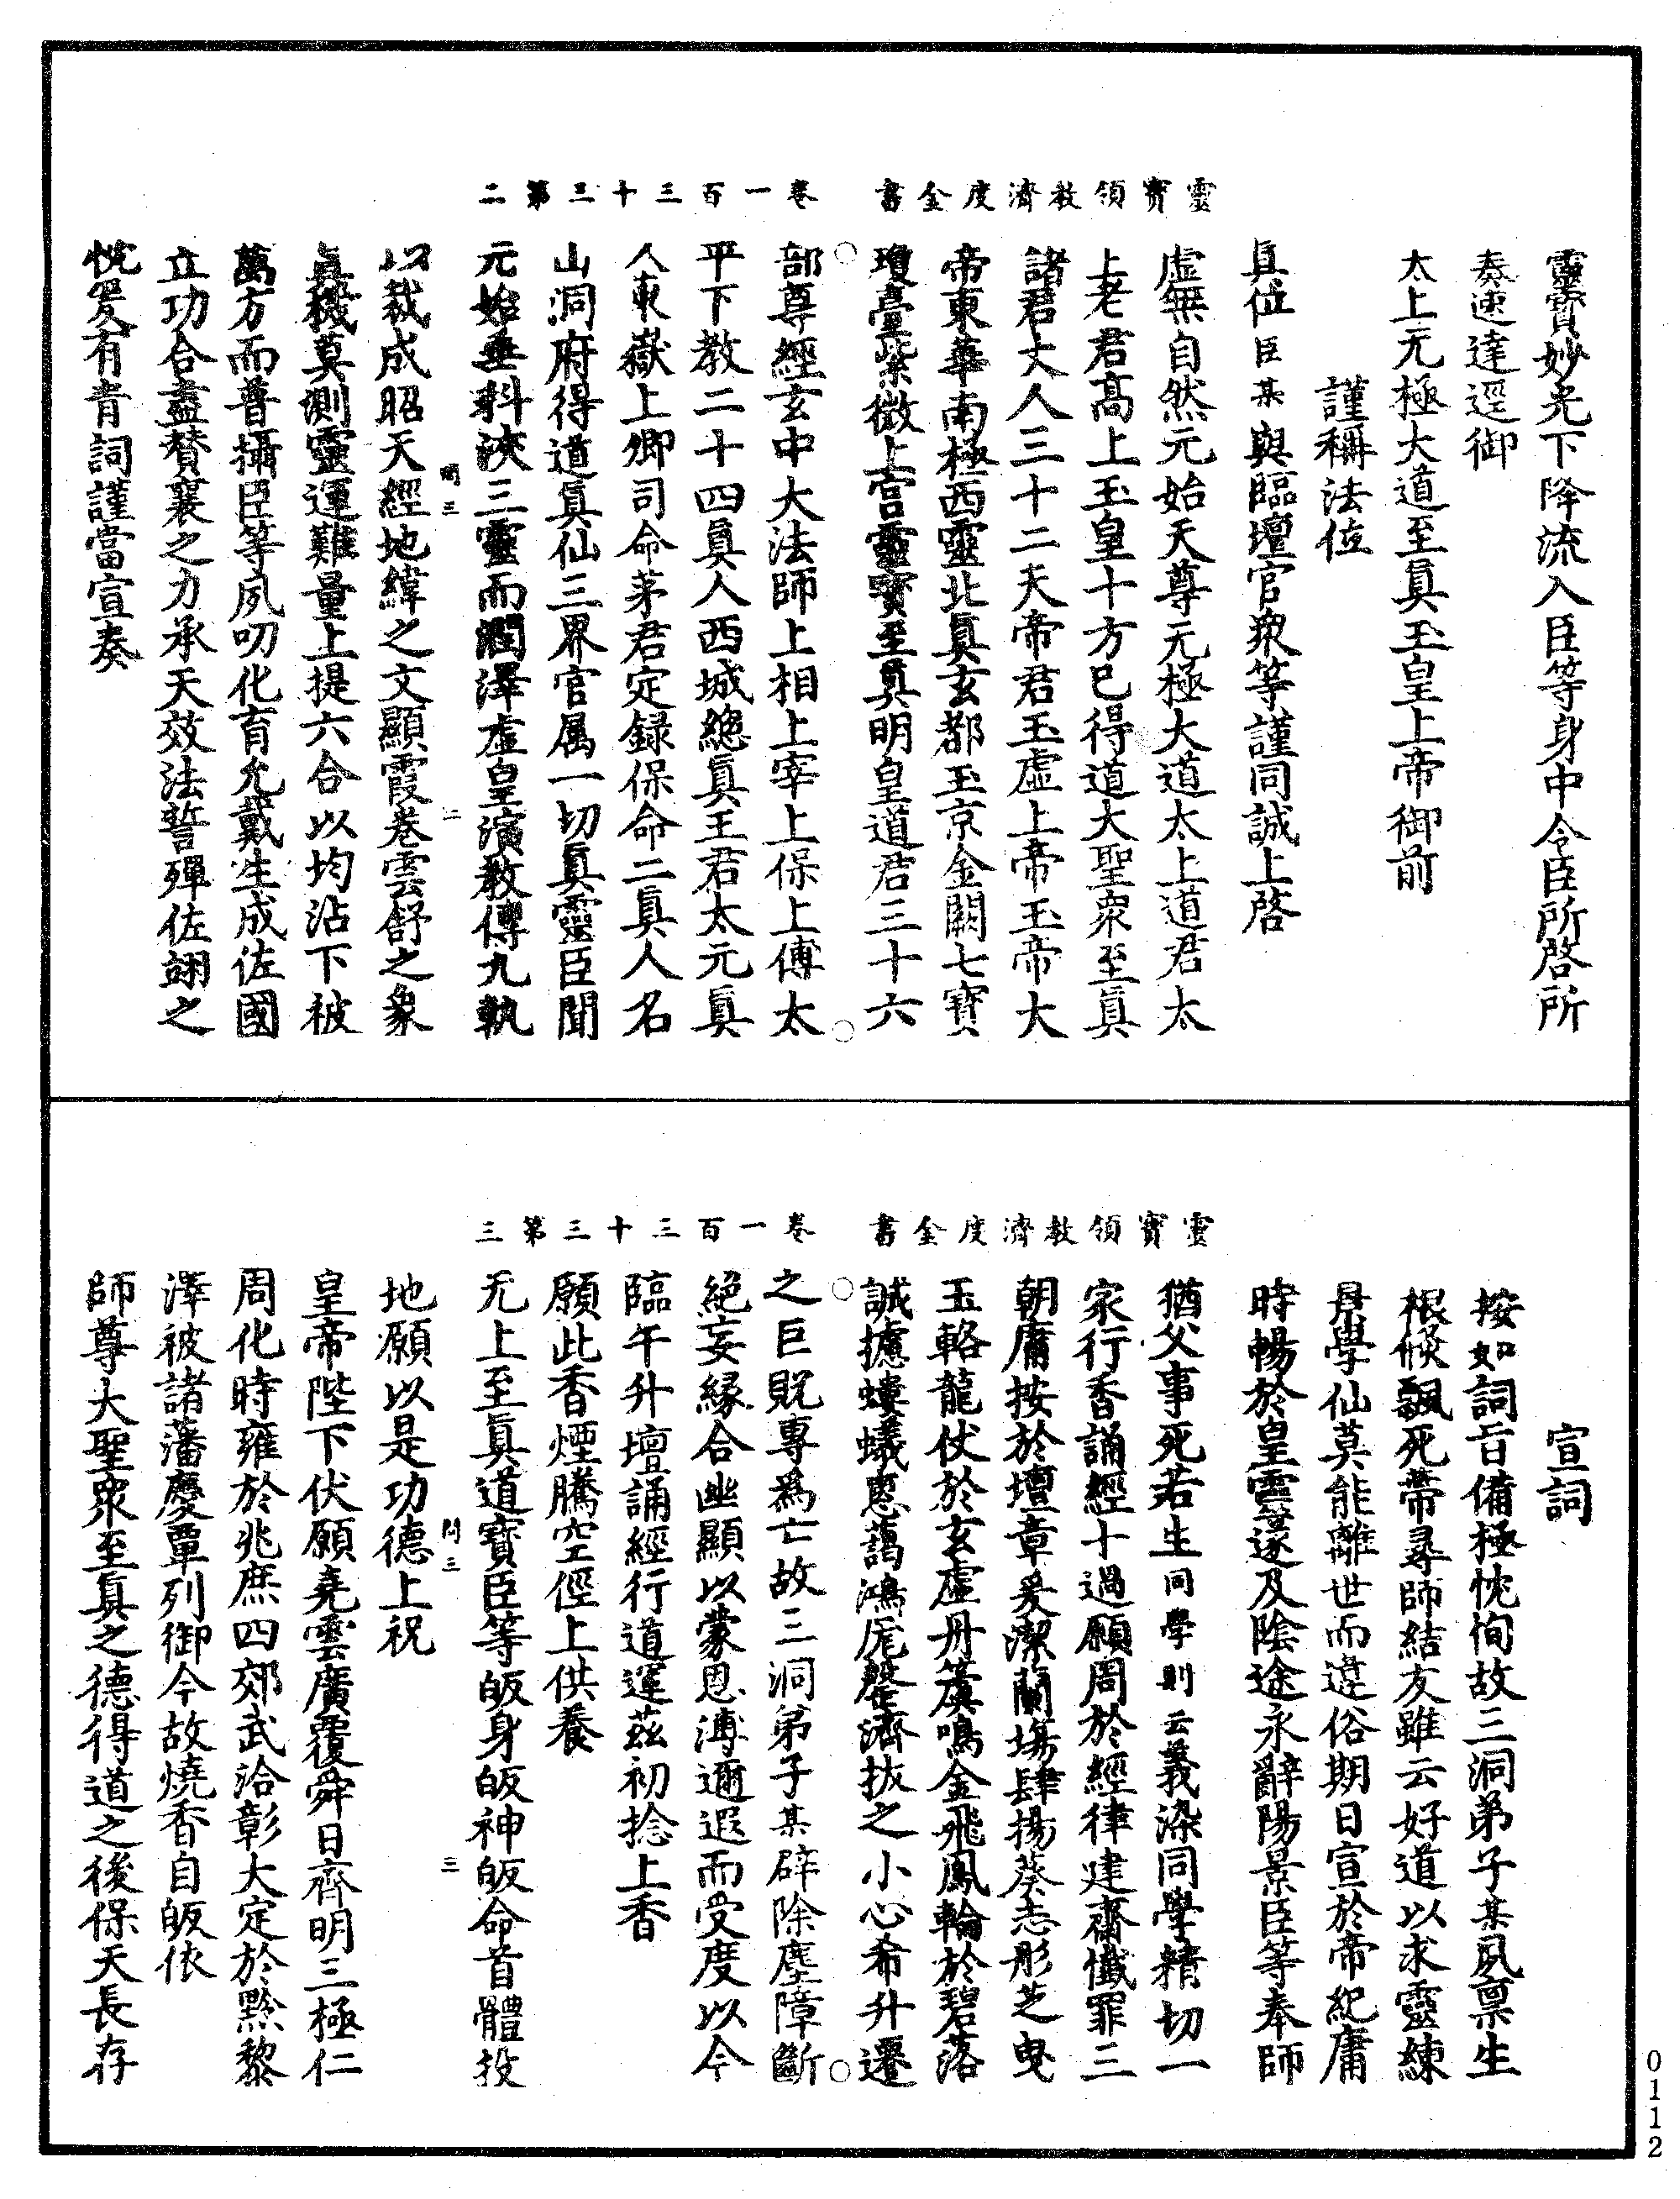 靈寶領教濟度金書　卷一百三十三第二
靈寶妙光下降流入臣等身中令臣所啓所
奏速達逕御
太上元極大道至眞玉皇上帝御前
謹稱法位
具位臣某與臨壇官衆等謹同誠上啓
虛無自然元始天尊元極大道太上道君太
上老君高上玉皇十方已得道大聖衆至眞
諸君丈人三十二天帝君玉虛上帝玉帝大
帝東華南極西靈北眞玄都玉京金闕七寶
瓊臺紫微上宮靈寶至眞明皇道君三十六
部尊經玄中大法師上相上宰上保上傅太
平下教二十四眞人西城總眞王君太元眞
人東嶽上卿司命茅君定録保命二眞人名
山洞府得道眞仙三界官属一切眞靈臣聞
元始垂科浹三靈而潤澤虛皇演教傳九執
以裁成昭天經地緯之文顯霞卷雲舒之象
眞機莫測靈運難量上提六合以均沾下被
萬方而普攝臣等夙叨化育允戴生成佐國
立功合盡賛襄之力承天效法誓殫佐翊之
忱爰有青詞謹當宣奏
靈寶領教濟度金書　卷一百三十三第三
宣詞
按如詞旨備極忱恂故三洞弟子某夙禀生
根倐飄死蔕尋師結友雖云好道以求靈練
景學仙莫能離世而違俗期日宣於帝紀庸
時暢於皇靈遂及陰途永辭陽景臣等奉師
猶父事死若生同學則云義染同學精切一
家行香誦經十過願周於經律建齋懺罪三
朝庸按於壇章爰潔蘭塲肆揚葵志彤芝曳
玉輅龍仗於玄虛丹蓂鳴金飛鳳輪於碧落
誠攄螻蟻悤藹鴻厖罄濟拔之小心希升遷
之巨貺專爲亡故三洞弟子某辟除塵障斷
絕妄緣合幽顯以蒙恩溥邇遐而受度以今
臨午升壇誦經行道運茲初捻上香
願此香煙騰空徑上供養
无上至眞道寶臣等皈身皈神皈命首體投
地願以是功德上祝
皇帝陛下伏願堯雲廣覆舜日齊明三極仁
周化時雍於兆庶四郊武洽彰大定於黔黎
澤被諸藩慶覃列御今故燒香自皈依
師尊大聖衆至眞之德得道之後保天長存
0112